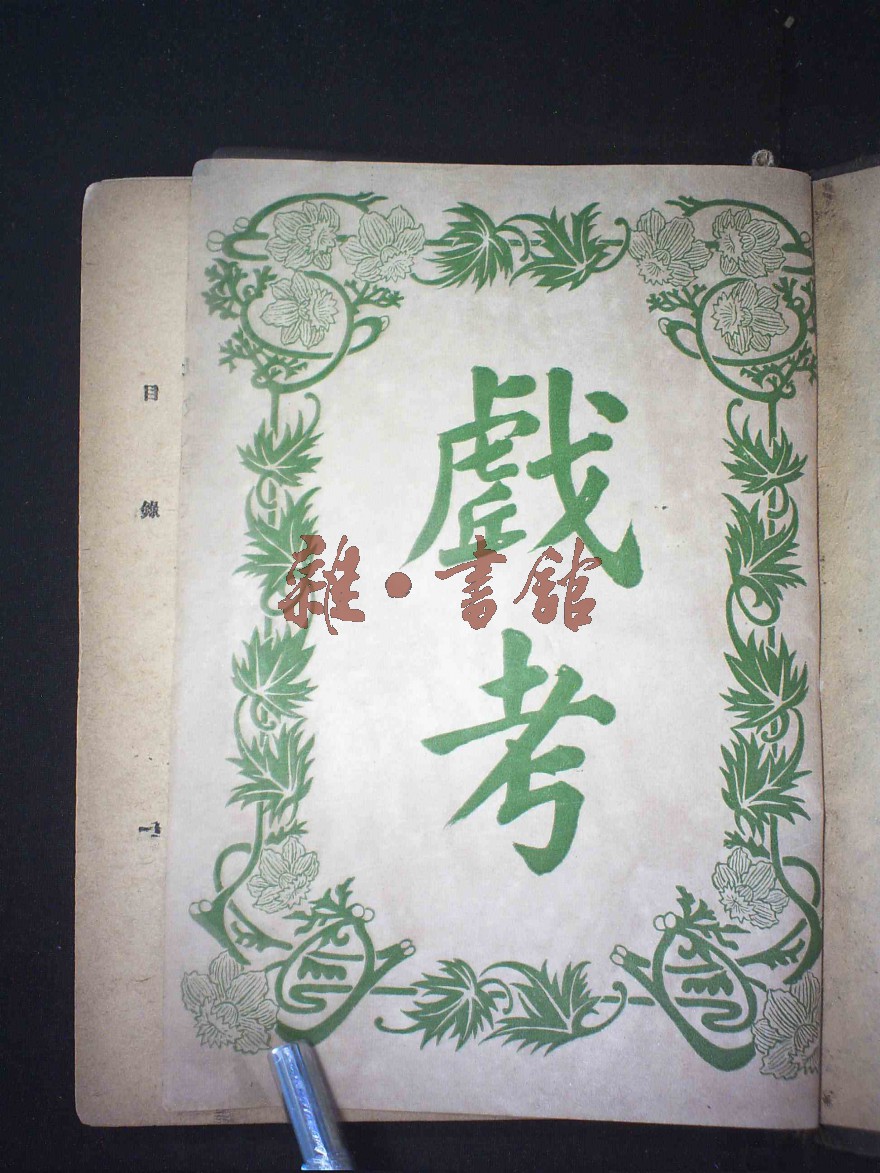 戲考
雜·書舘
目錄
一